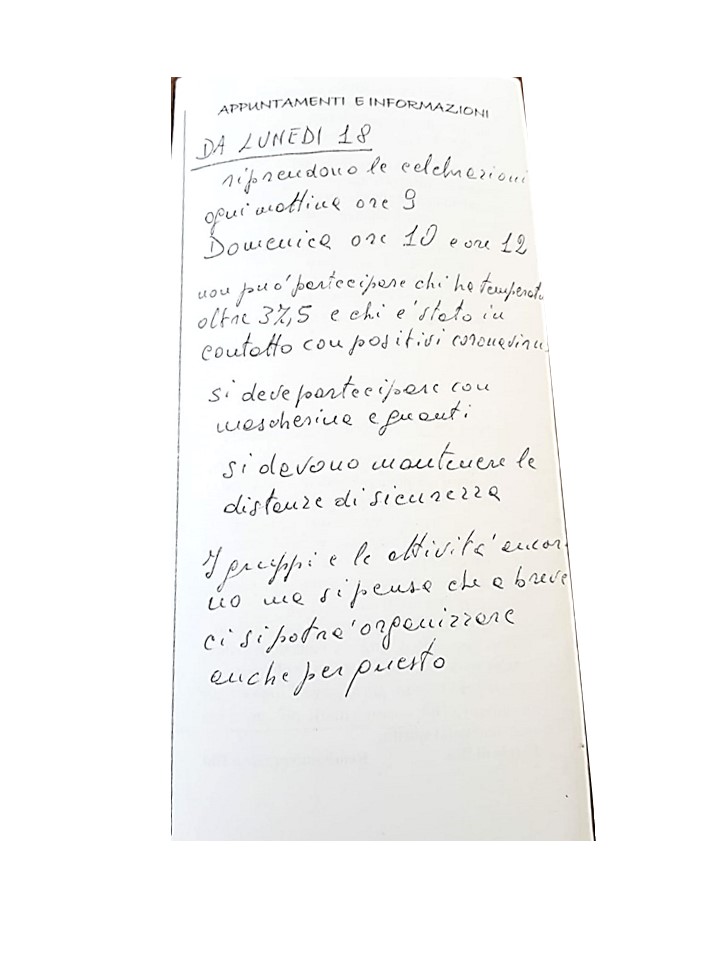 APPUNTAMENTI E INFORMAZIONI
DA LUNEDI 18
riprendono le celebrazioni
ogni mattina ore 9
Domenica ore 10 e ore 12
non puo' partecipare chi ha temperatu
oltre 37,5 e chi e' stato in
contatto con positivi coronavirus
si deve partecipare con
mascherina e guanti
si devono mantenere le
distanze di sicurezza
I gruppi e le attivita' ancor
no ma si pensa che a breve
ci si potra' organizzare
anche per questo